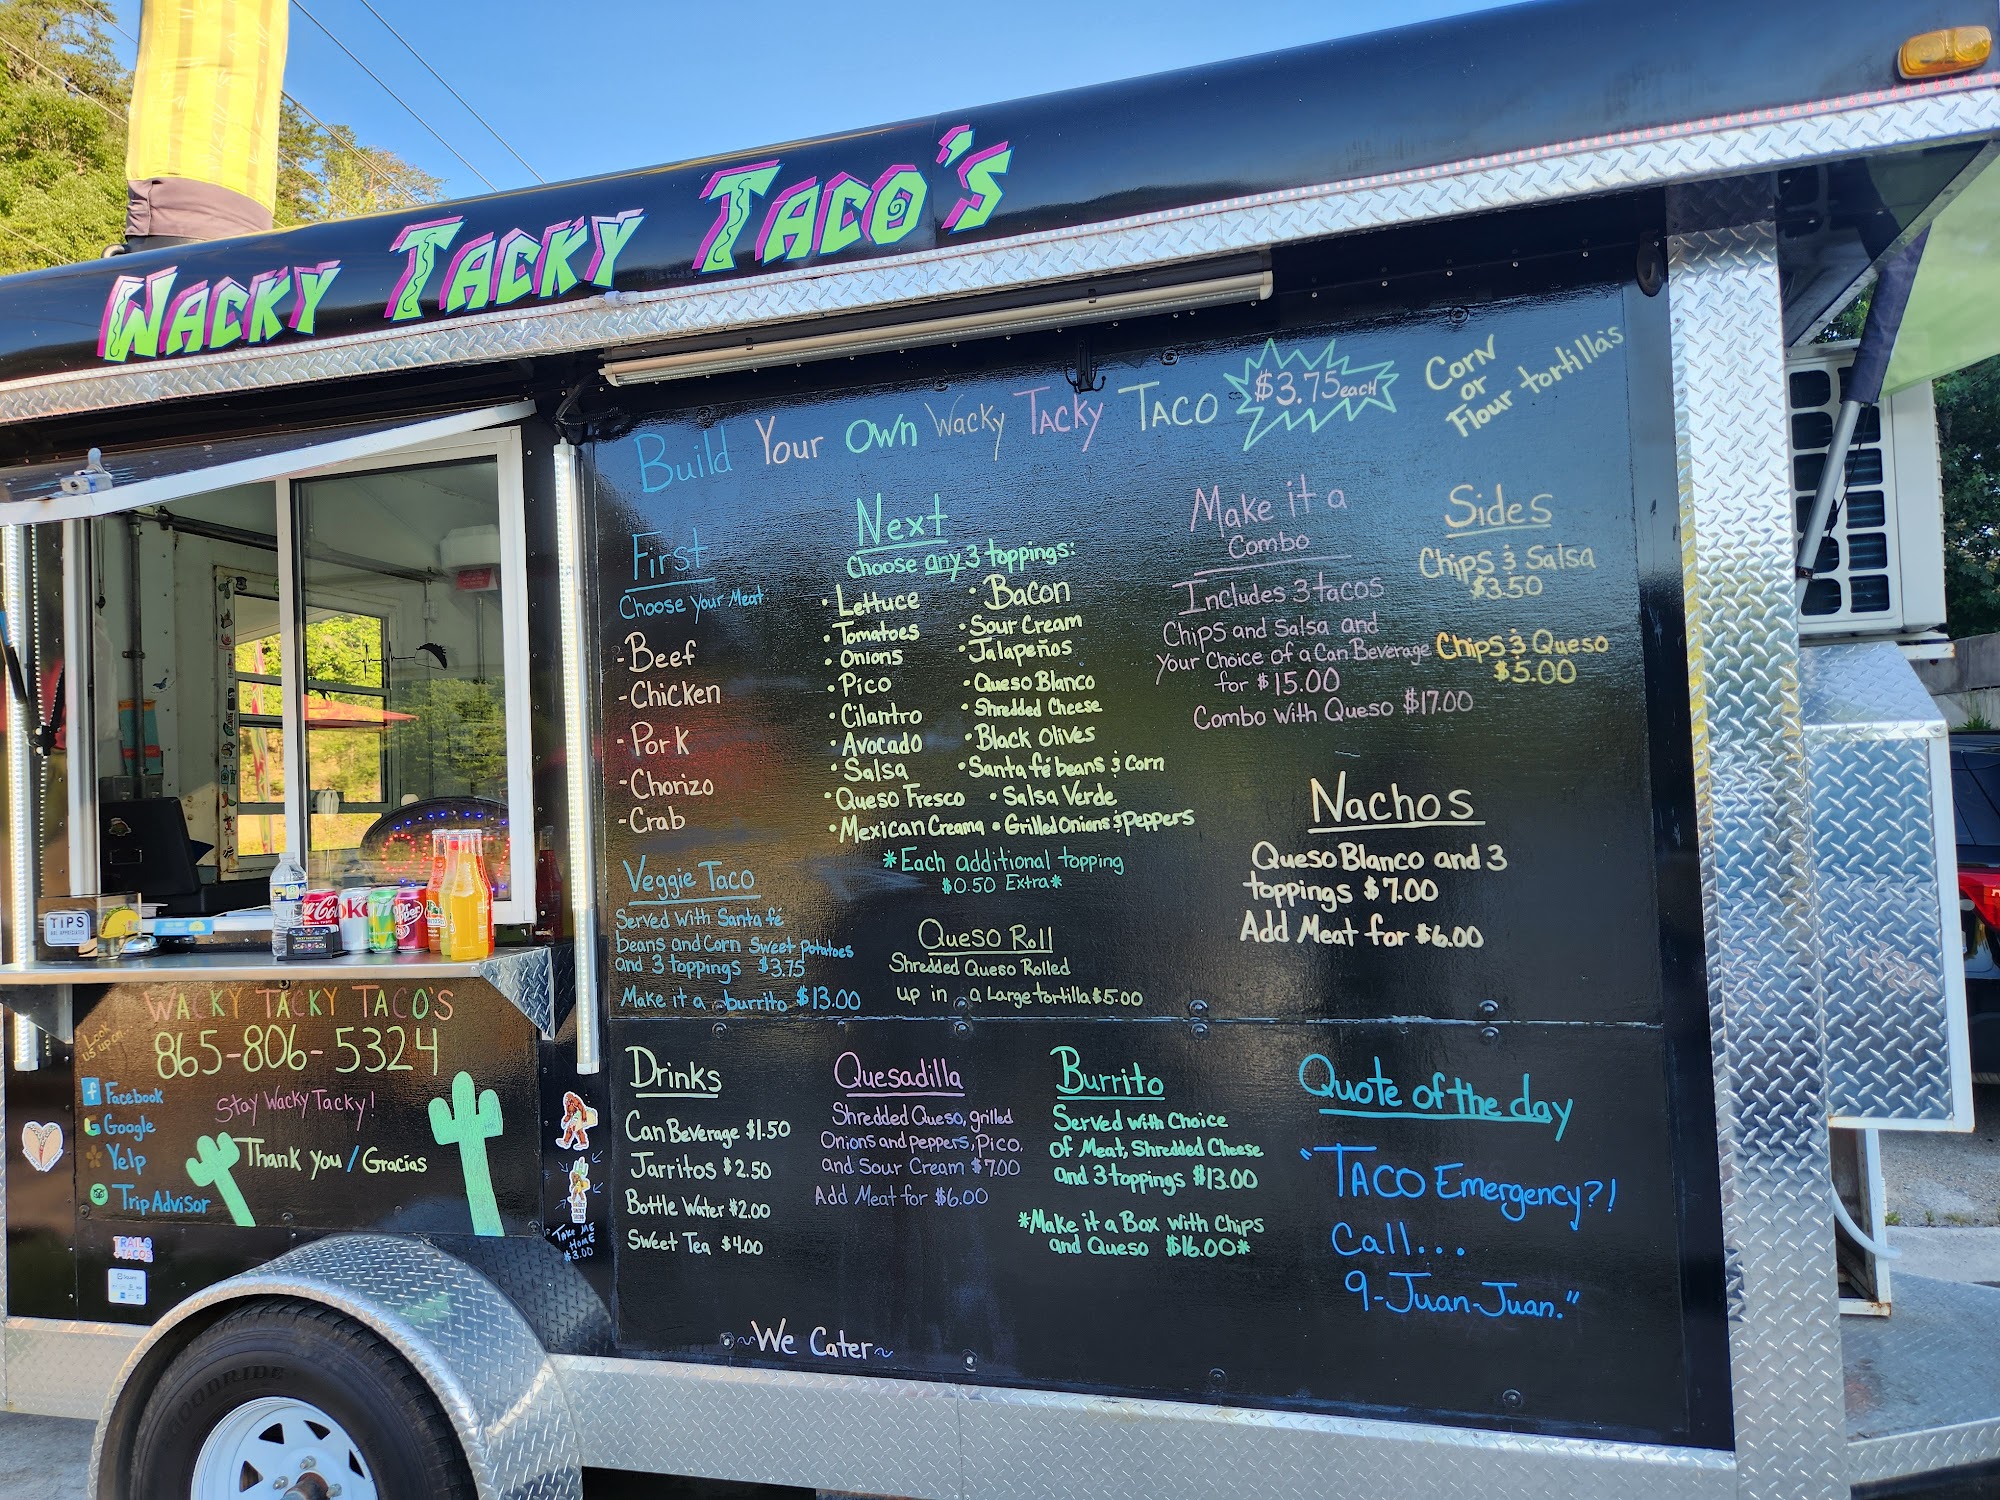 WACKY TACKY TACO'S
Build Your Own Wacky Tacky TACO $3.75 each
Corn
or
Flour tortillas
First
Choose Your Meat
- Beef
- Chicken
- Pork
- Chorizo
- Crab
Veggie Taco
Served with Santa fé
beans and Corn Sweet Potatoes
and 3 toppings $3.75
Make it a burrito $13.00
Next
Choose any 3 toppings:
• Lettuce
• Tomatoes
• Onions
• Pico
• Cilantro
• Avocado
• Salsa
• Queso Fresco
• Mexican Crema
• Bacon
• Sour Cream
• Jalapeños
• Queso Blanco
• Shredded Cheese
• Black Olives
• Santa fé beans & Corn
• Salsa Verde
• Grilled Onions & Peppers
*Each additional topping
$0.50 Extra*
Queso Roll
Shredded Queso Rolled
up in a Large tortilla $5.00
Make it a
Combo
Includes 3 tacos
Chips and Salsa and
Your Choice of a Can Beverage
for $15.00
Combo With Queso $17.00
Sides
Chips & Salsa
$3.50
Chips & Queso
$5.00
Nachos
Queso Blanco and 3
toppings $7.00
Add Meat for $6.00
Drinks
Can Beverage $1.50
Jarritos $2.50
Bottle Water $2.00
Sweet Tea $4.00
Quesadilla
Shredded Queso, grilled
Onions and peppers, Pico,
and Sour Cream $7.00
Add Meat for $6.00
Burrito
Served with Choice
of Meat, Shredded Cheese
and 3 toppings $13.00
*Make it a Box with Chips
and Queso $16.00*
Quote of the day
"TACO Emergency?!
Call...
9-Juan-Juan."
~We Cater~
TIPS
ARE APPRECIATED
Coca-Cola
oke
Dr Pepper
WACKY TACKY TACO'S
865-806-5324
Look
us up on
Facebook
Google
Yelp
Trip Advisor
Stay Wacky Tacky!
Thank you / Gracias
TRAILS
+TACOS
Square
Take ME
HOME
$3.00
GOODRIDE